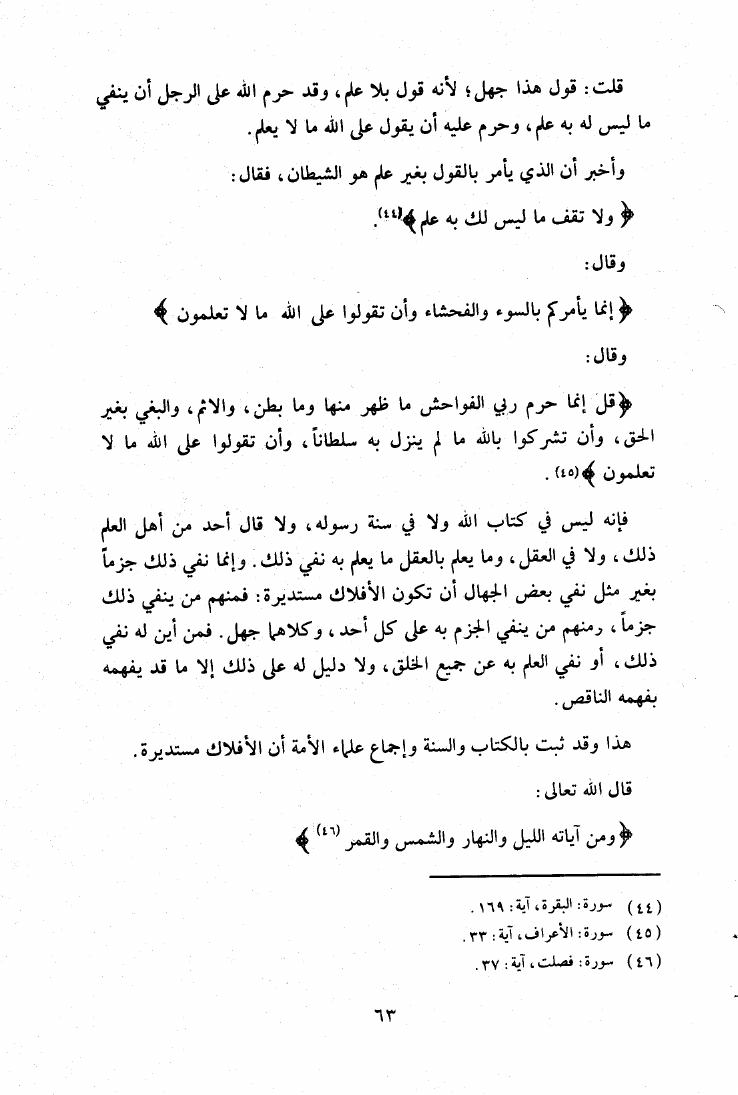 قلت: قول هذا جهل؛ لأنه قول بلا علم، وقد حرم الله على الرجل أن ينفي
ما ليس له به علم، وحرم عليه أن يقول على الله ما لا يعلم.
وأخبر أن الذي يأمر بالقول بغير علم هو الشيطان، فقال:
﴿ ولا تقف ما ليس لك به علم ﴾(٤٤).
وقال:
﴿ إنما يأمركم بالسوء والفحشاء وأن تقولوا على الله ما لا تعلمون ﴾
وقال:
﴿قل إنما حرم ربي الفواحش ما ظهر منها وما بطن، والاثم، والبغي بغير
الحق، وأن تشركوا بالله ما لم ينزل به سلطاناً، وأن تقولوا على الله ما لا
تعلمون ﴾(٤٥).
فإنه ليس في كتاب الله ولا في سنة رسوله، ولا قال أحد من أهل العلم
ذلك، ولا في العقل، وما يعلم بالعقل ما يعلم به نفي ذلك. وإنما نفي ذلك جزماً
بغير مثل نفي بعض الجهال أن تكون الأفلاك مستديرة: فمنهم من ينفي ذلك
جزماً، رمنهم من ينفي الجزم به على كل أحد، وكلاهما جهل. فمن أين له نفي
ذلك، أو نفي العلم به عن جميع الخلق، ولا دليل له على ذلك إلا ما قد يفهمه
بفهمه الناقص.
هذا وقد ثبت بالكتاب والسنة وإجماع علماء الأمة أن الأفلاك مستديرة.
قال الله تعالى:
﴿ومن آياته الليل والنهار والشمس والقمر (٤٦) ﴾
(٤٤) سورة: البقرة، آية: ١٦٩.
(٤٥) سورة: الأعراف، آية: ٣٣.
(٤٦) سورة: فصلت، آية: ٣٧.
٦٣